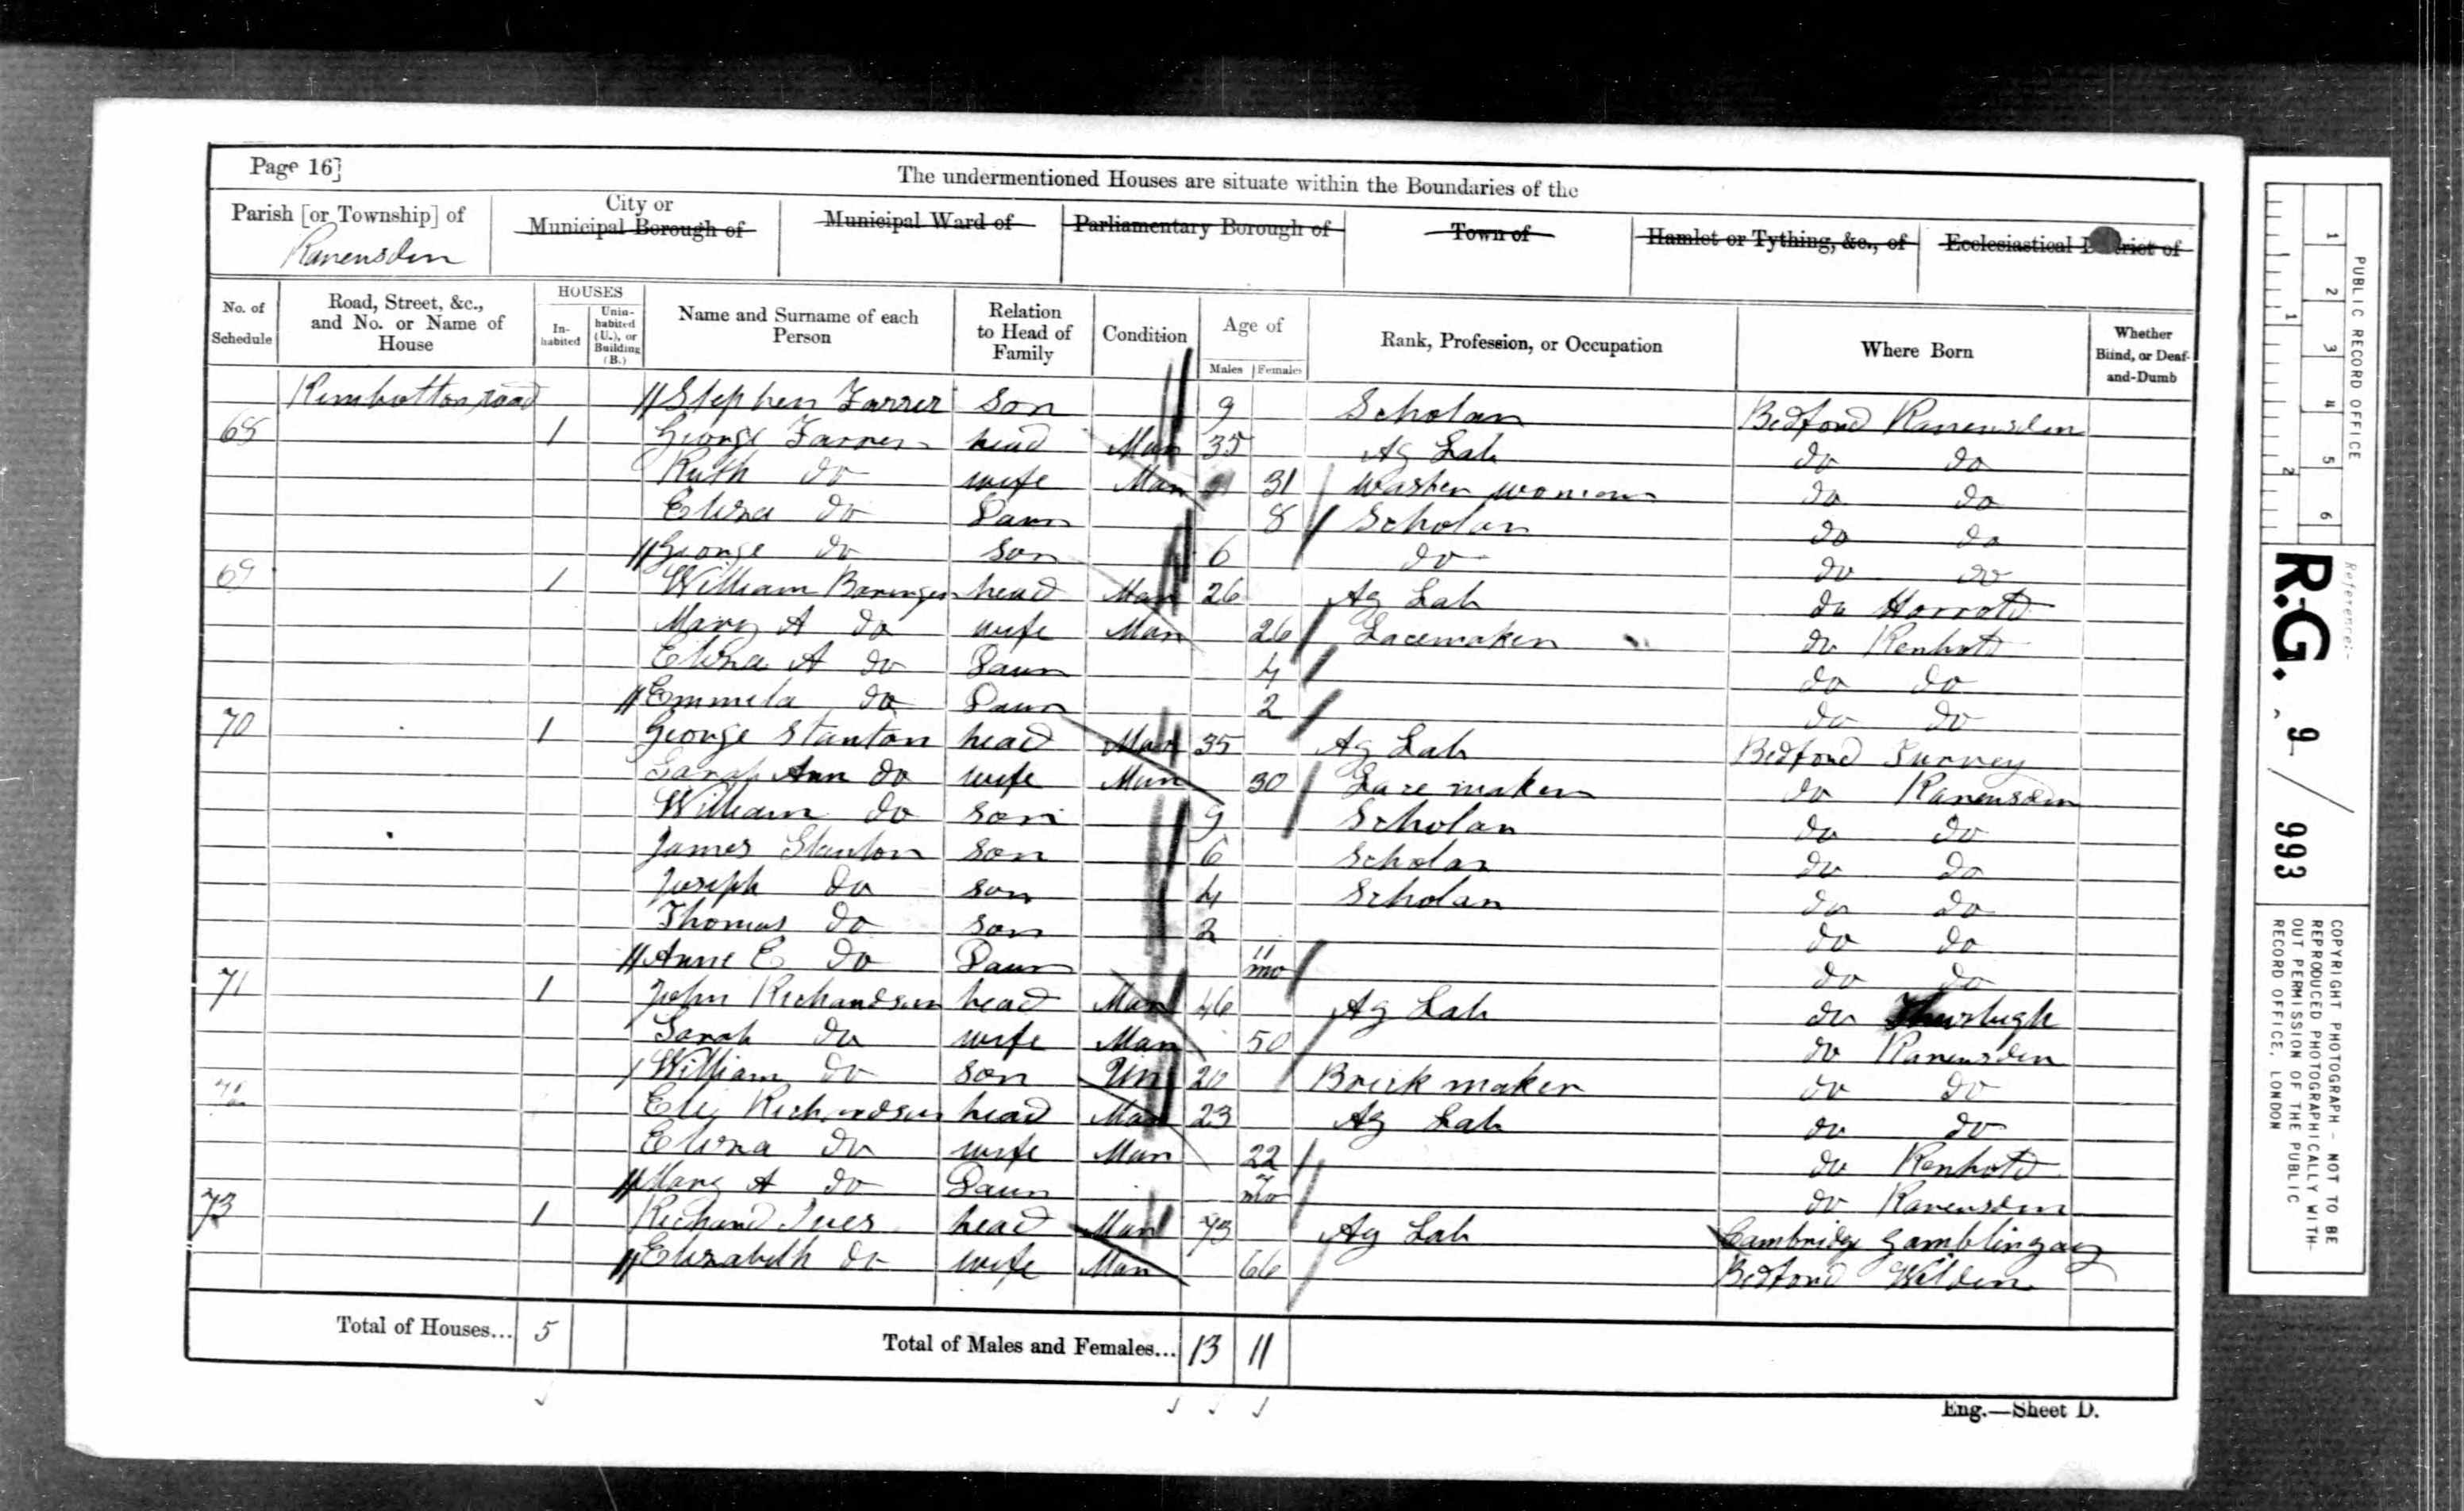 Page 16]
The undermentioned Houses are situate within the Boundaries of the
Parish [or Township] of
Ravensden
City or
Municipal Borough of
Municipal Ward of
Parliamentary Borough of
Town of
Hamlet or Tything, &c., of
Ecclesiastical District of
No. of Schedule
Road, Street, &c., and No. or Name of House
HOUSES
In-habited
Unin-habited (U.), or Building (B.)
Name and Surname of each Person
Relation to Head of Family
Condition
Age of
Males Females
Rank, Profession, or Occupation
Where Born
Whether Blind, or Deaf-and-Dumb
Kimbolton road // Stephen Farrer son 9 Scholar Bedford Ravensden
68 1 George Farrer head Mar 35 Ag Lab do do
Ruth do wife Mar 31 Washer woman do do
Eliza do Daur 8 Scholar do do
// George do son 6 do do do
69 1 William head Mar 26 Ag Lab do Harrold
Mary A do wife Mar 26 Lacemaker do Renhold
Eliza A do Daur 4 do do
// Emmela do Daur 2 do do
70 1 George Stanton head Mar 35 Ag Lab Bedford Turvey
Sarah Ann do wife Mar 30 Lace maker do Ravensden
William do son 9 Scholar do do
James Stanton son 6 Scholar do do
Joseph do son 4 Scholar do do
Thomas do son 2 do do
// Anne E do Daur 11 mo do do
71 1 John Richardson head Mar 46 Ag Lab do Thurleigh
Sarah do wife Mar 50 do Ravensden
/ William do son Un 20 Brick maker do do
Richardson head Mar 23 Ag Lab do do
Eliza do wife Mar 22 do Renhold
// Mary A do Daur 7 mo do Ravensden
73 1 Richard Ives head Mar 73 Ag Lab Cambridge Gamblingay
// Elizabeth do wife Mar 66 Bedford Wilden
Total of Houses... 5
Total of Males and Females... 13 11
Eng.—Sheet D.
PUBLIC RECORD OFFICE
1 2 3 4 5 6
1 2
Reference:-
R.G. 9 / 993
COPYRIGHT PHOTOGRAPH - NOT TO BE
REPRODUCED PHOTOGRAPHICALLY WITH-
OUT PERMISSION OF THE PUBLIC
RECORD OFFICE, LONDON